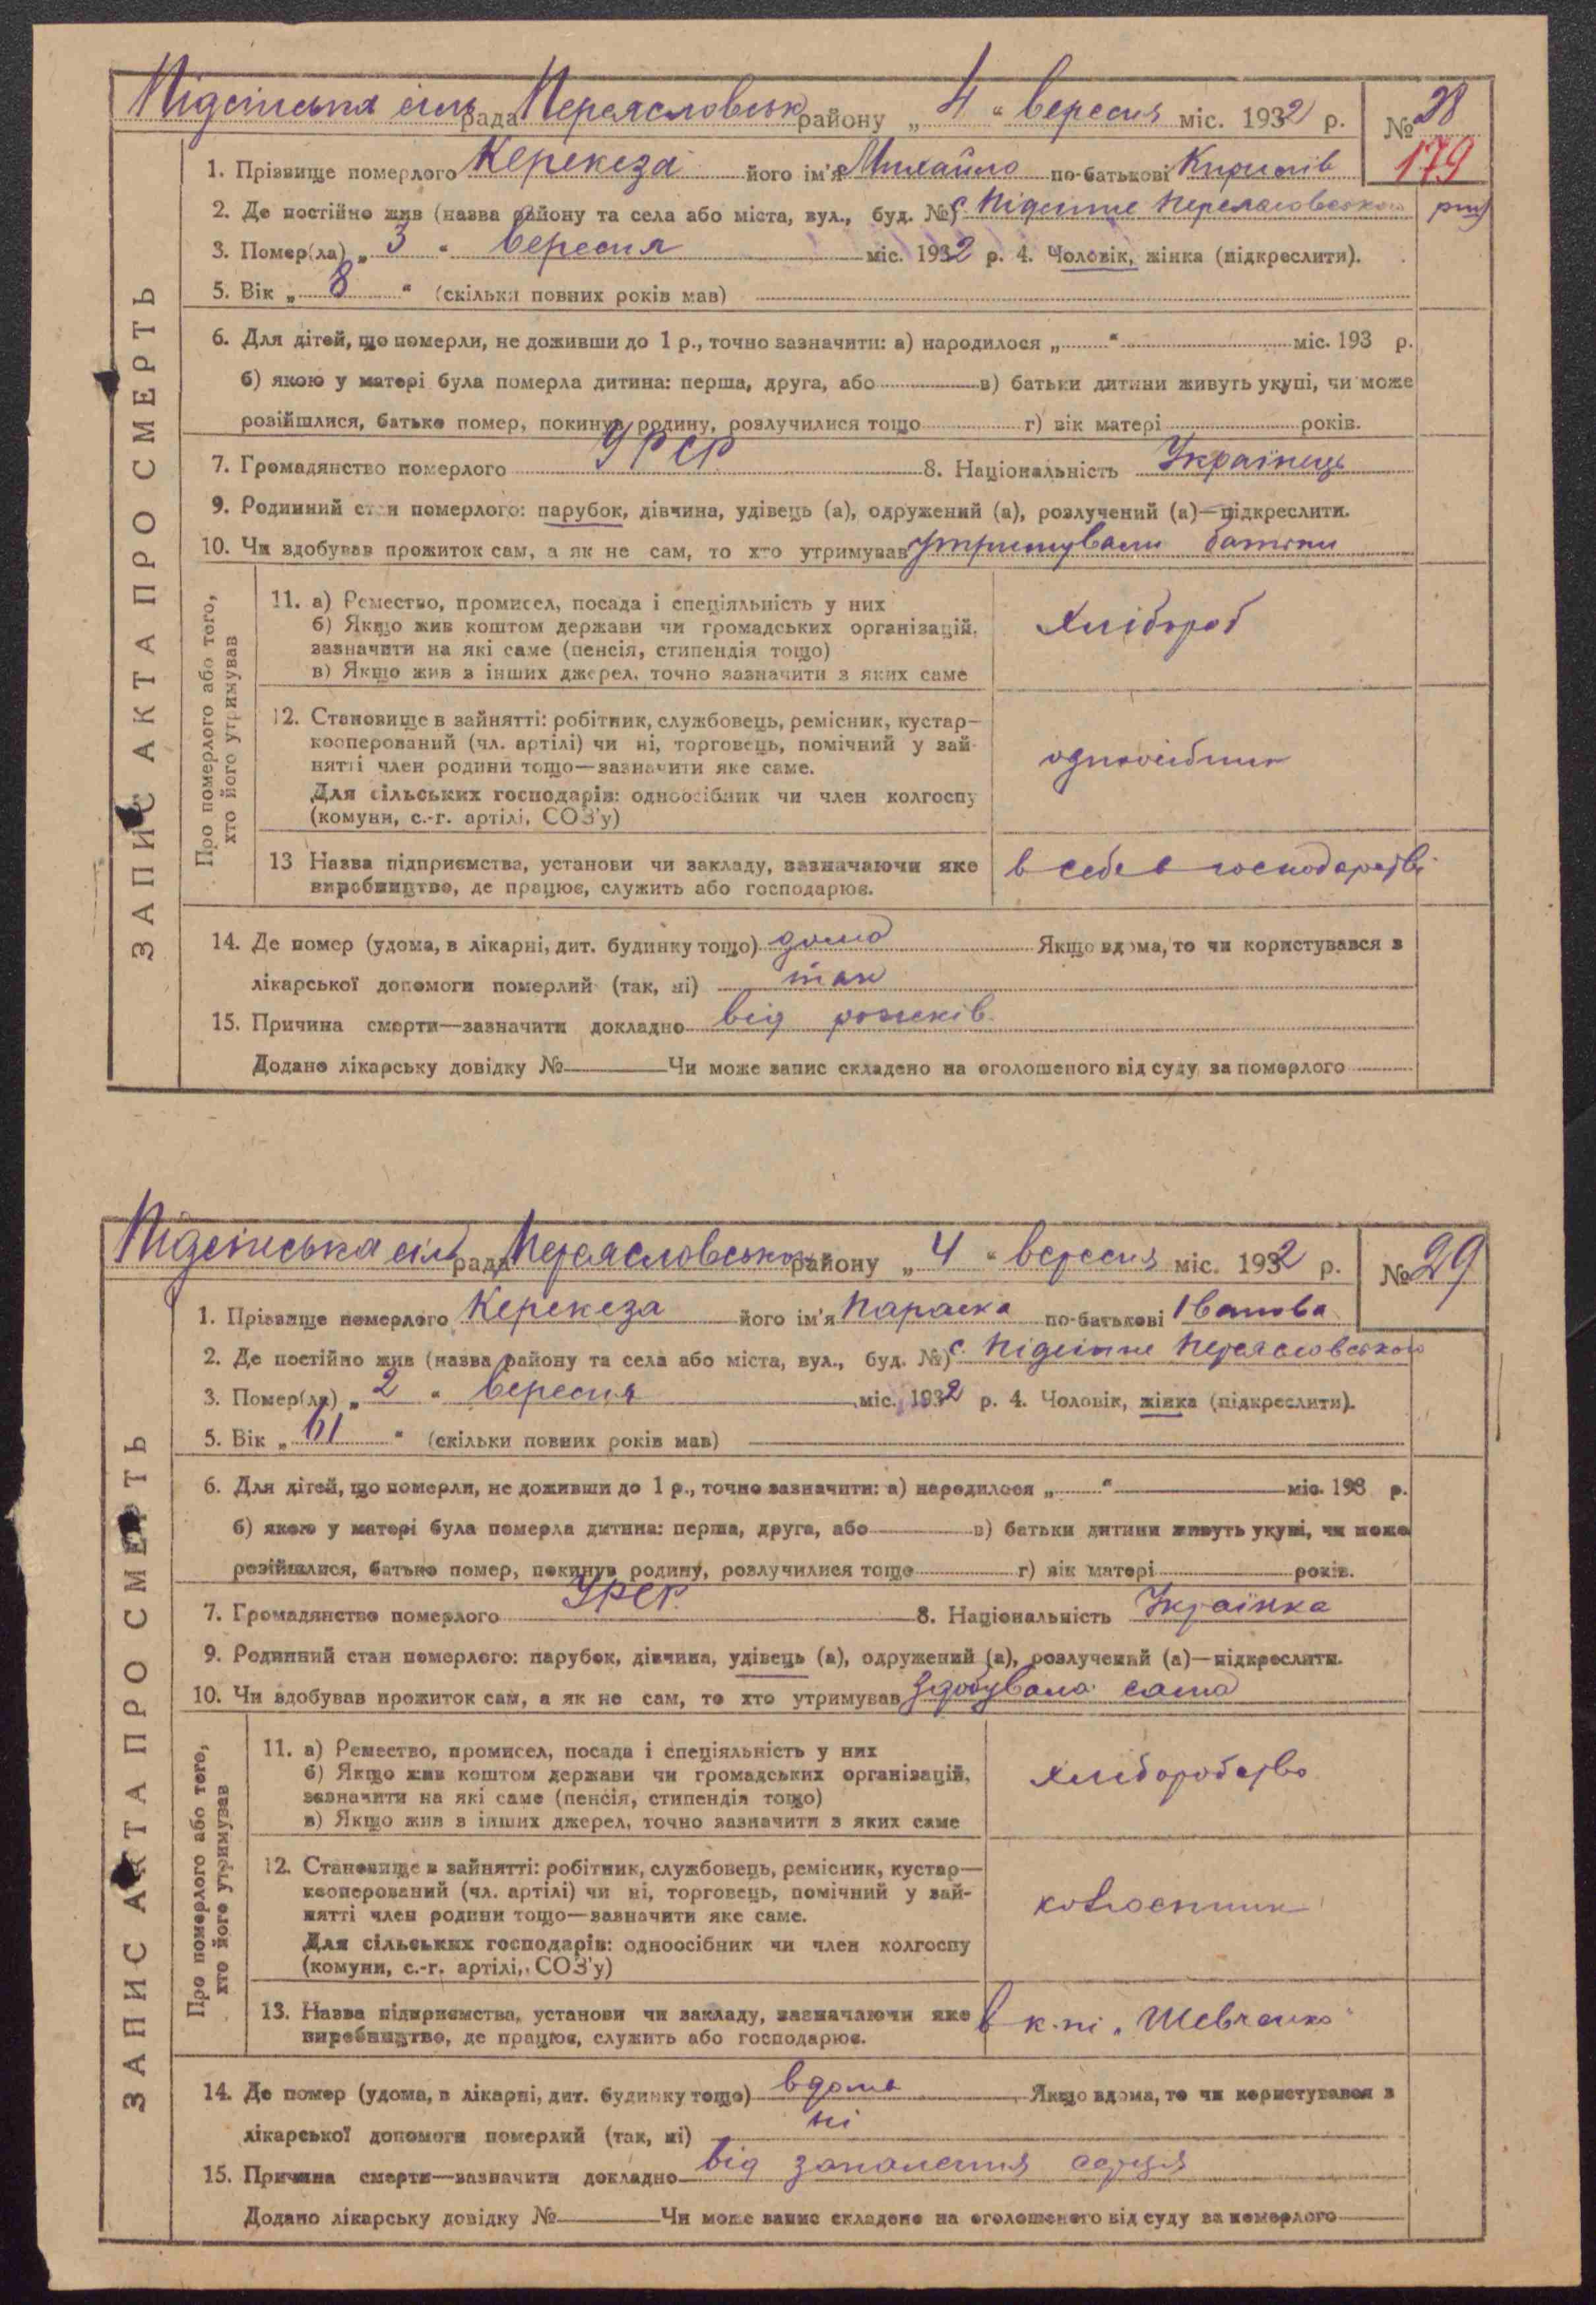 Підсінська сіль рада Переясловськ району „ 4 " вересня міс. 1932 р. № 28
179
1. Прізвище померлого Керекеза його ім'я Михайло по-батькові Кирилів
2. Де постійно жив (назва району та села або міста, вул., буд. №) с Підсінне Переясловського
3. Помер(ла) „ 3 " вересня міс. 1932 р. 4. Чоловік, жінка (підкреслити).
5. Вік „ 8 " (скільки повних років мав)
6. Для дітей, що померли, не доживши до 1 р., точно зазначити: а) народилося „ " міс. 193 р.
б) якою у матері була померла дитина: перша, друга, або в) батьки дитини живуть укупі, чи може
розійшлися, батько помер, покинув родину, розлучилися тощо г) вік матері років.
7. Громадянство померлого УРСР 8. Національність Українець
9. Родинний стан померлого: парубок, дівчина, удівець (а), одружений (а), розлучений (а)—підкреслити.
10. Чи здобував прожиток сам, а як не сам, то хто утримував утримували батьки
ЗАПИС АКТА ПРО СМЕРТЬ
Про померлого або того,
хто його утримував
11. а) Ремество, промисел, посада і спеціяльність у них
б) Якщо жив коштом держави чи громадських організацій,
зазначити на які саме (пенсія, стипендія тощо)
в) Якщо жив з інших джерел, точно зазначити з яких саме
хлібороб
12. Становище в зайнятті: робітник, службовець, ремісник, кустар—
кооперований (чл. артілі) чи ні, торговець, помічний у зай-
нятті член родини тощо—зазначити яке саме.
Для сільських господарів: одноосібник чи член колгоспу
(комуни, с.-г. артілі, СОЗ'у)
одноосібник
13 Назва підприємства, установи чи закладу, зазначаючи яке
виробництво, де працює, служить або господарює.
в себе в господарстві
14. Де помер (удома, в лікарні, дит. будинку тощо) дома Якщо вдома, то чи користувався з
лікарської допомоги померлий (так, ні) так
15. Причина смерти—зазначити докладно від
Додано лікарську довідку № Чи може запис складено на оголошеного від суду за померлого
Підсінська сіль рада Переясловського району „ 4 " вересня міс. 1932 р. № 29
1. Прізвище померлого Керекеза його ім'я Параска по-батькові Іванова
2. Де постійно жив (назва району та села або міста, вул., буд. №) с. Підсінне Переясловського
3. Помер(ла) „ 2 " вересня міс. 1932 р. 4. Чоловік, жінка (підкреслити).
5. Вік „ 61 " (скільки повних років мав)
6. Для дітей, що померли, не доживши до 1 р., точно зазначити: а) народилося „ " міс. 193 р.
б) якою у матері була померла дитина: перша, друга, або в) батьки дитини живуть укупі, чи може
розійшлися, батько помер, покинув родину, розлучилися тощо г) вік матері років.
7. Громадянство померлого УРСР. 8. Національність Українка
9. Родинний стан померлого: парубок, дівчина, удівець (а), одружений (а), розлучений (а)—підкреслити.
10. Чи здобував прожиток сам, а як не сам, то хто утримував здобувала сама
ЗАПИС АКТА ПРО СМЕРТЬ
Про померлого або того,
хто його утримував
11. а) Ремество, промисел, посада і спеціяльність у них
б) Якщо жив коштом держави чи громадських організацій,
зазначити на які саме (пенсія, стипендія тощо)
в) Якщо жив з інших джерел, точно зазначити з яких саме
хліборобство
12. Становище в зайнятті: робітник, службовець, ремісник, кустар—
кооперований (чл. артілі) чи ні, торговець, помічний у зай-
нятті член родини тощо—зазначити яке саме.
Для сільських господарів: одноосібник чи член колгоспу
(комуни, с.-г. артілі, СОЗ'у)
13. Назва підприємства, установи чи закладу, зазначаючи яке
виробництво, де працює, служить або господарює.
в к-пі „Шевченко"
14. Де помер (удома, в лікарні, дит. будинку тощо) вдома Якщо вдома, то чи користувався з
лікарської допомоги померлий (так, ні) ні
15. Причина смерти—зазначити докладно від запалення серця
Додано лікарську довідку № Чи може запис складено на оголошеного від суду за померлого